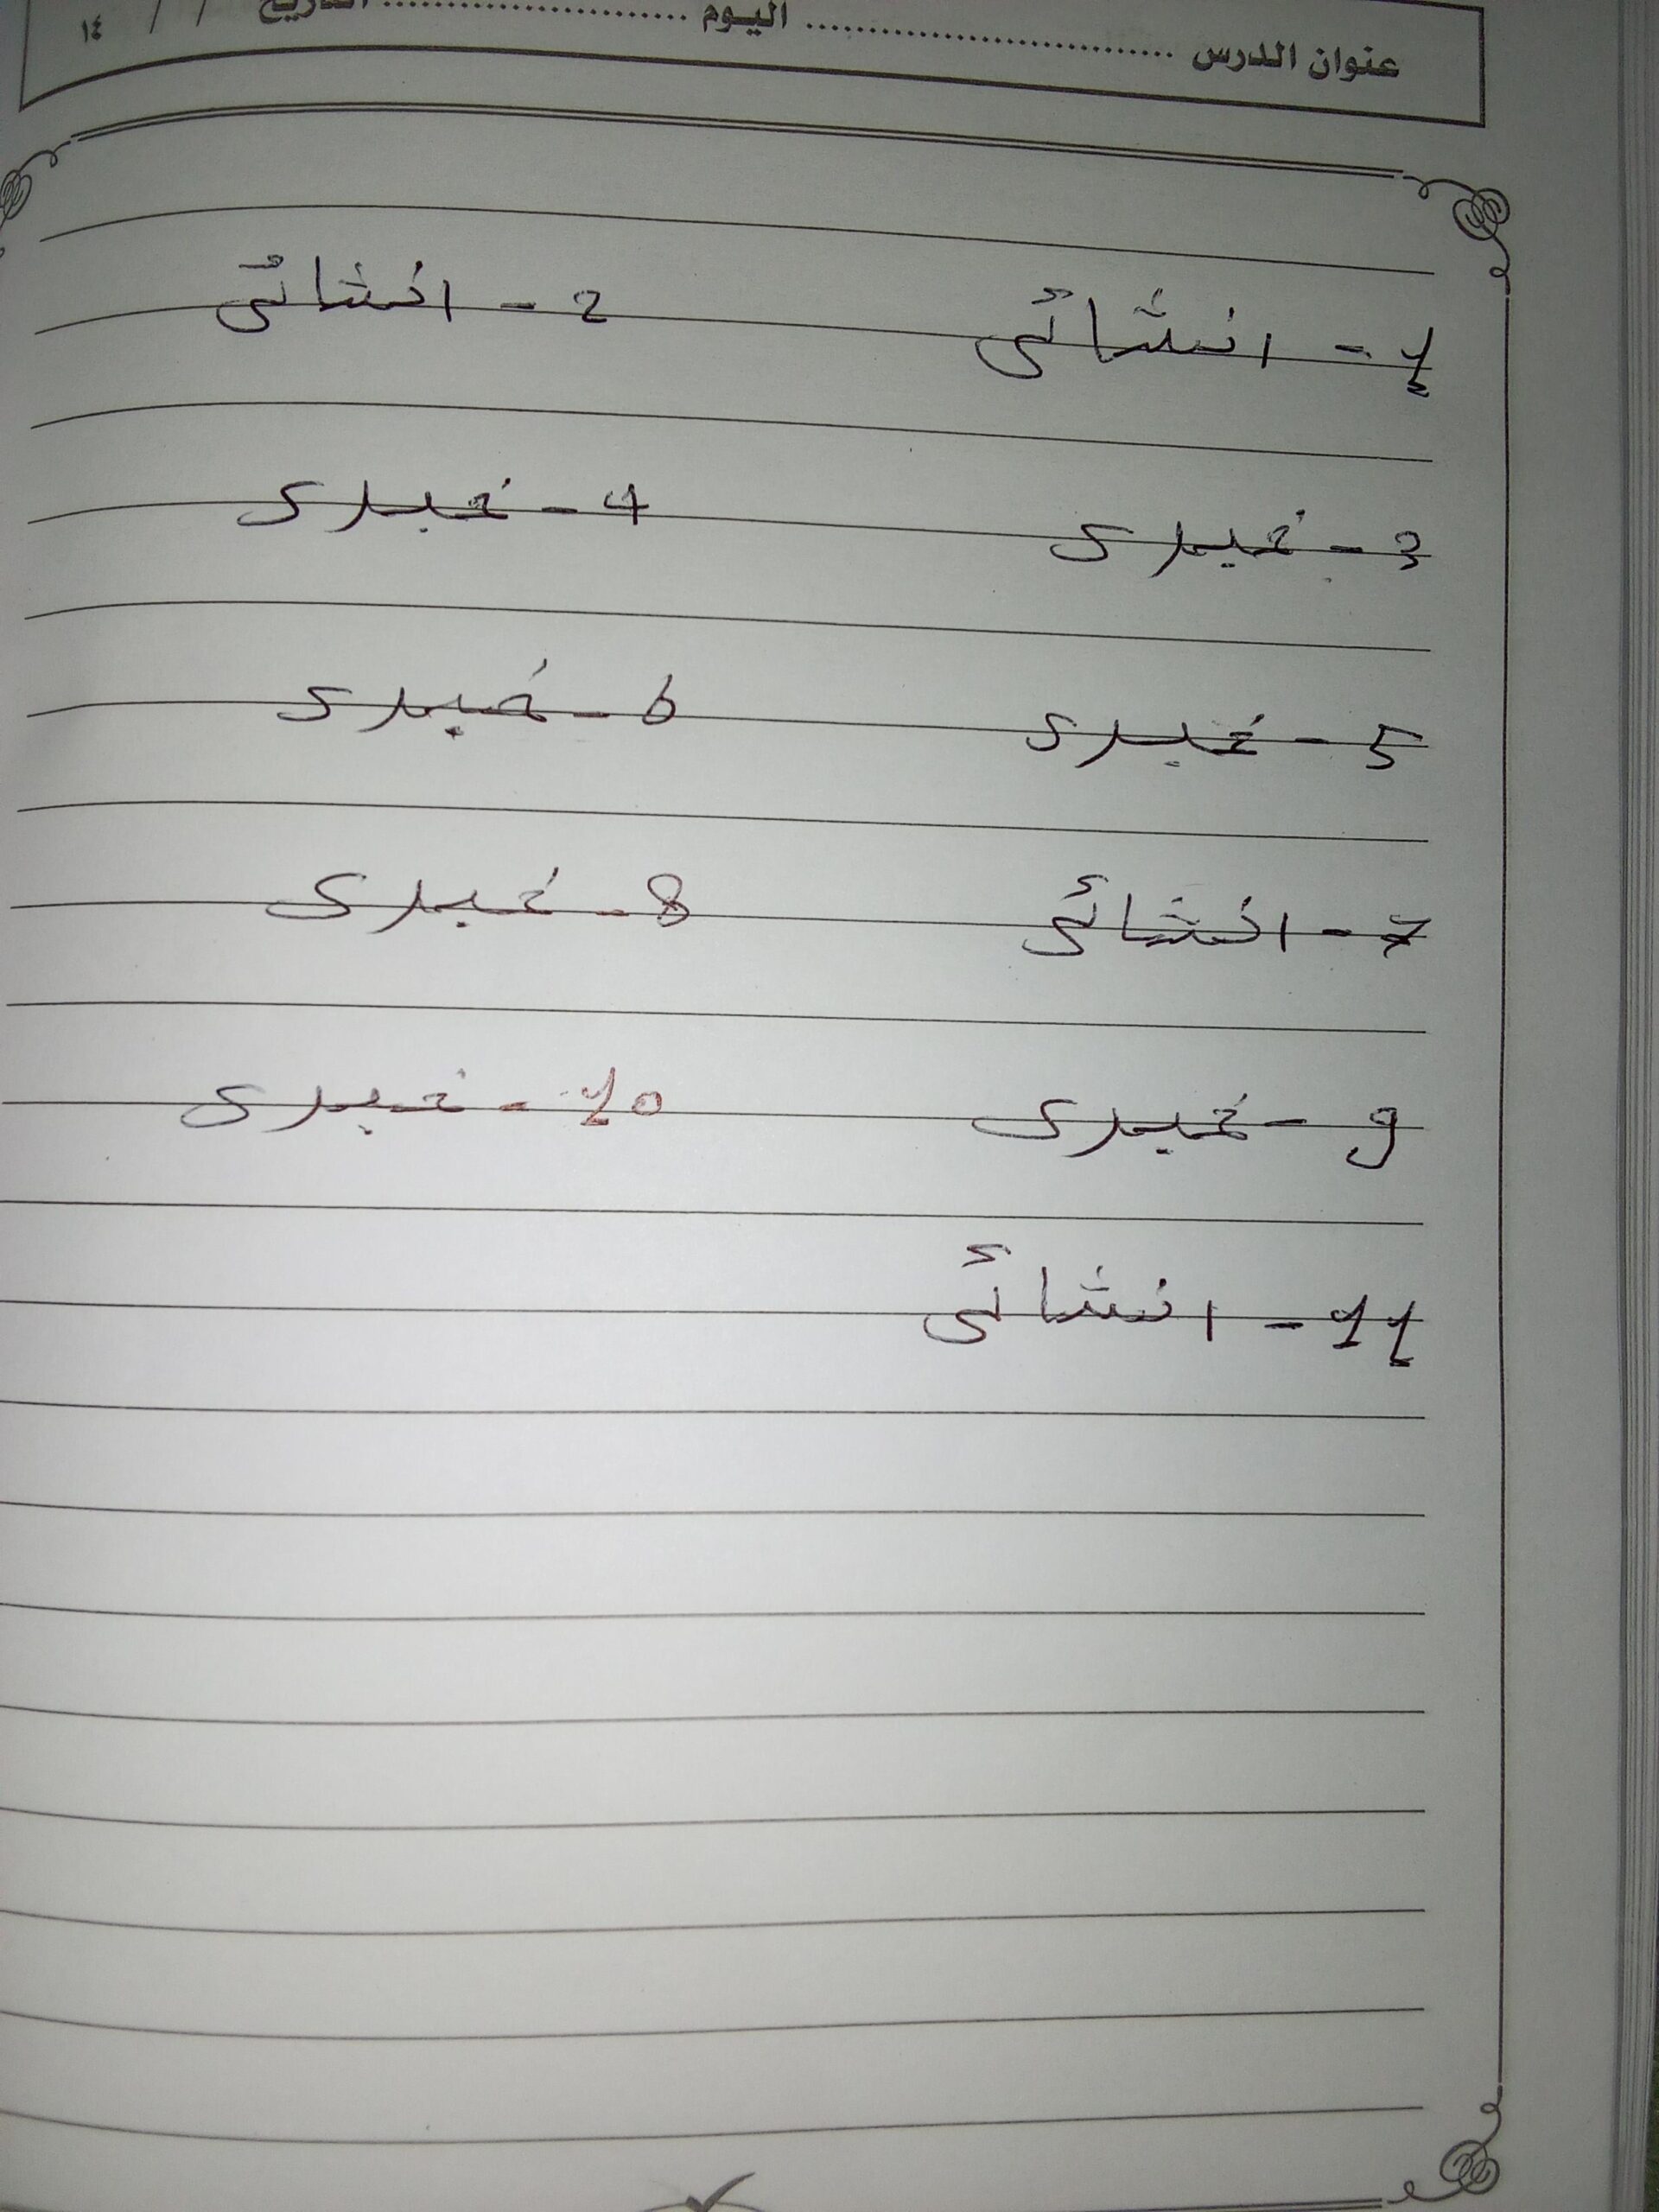 عنوان الدرس ........................ اليوم ........................ التاريخ / / ١٤
1 - انشائي 2 - انشائي
3 - خبري 4 - خبري
5 - خبري 6 - خبري
7 - انشائي 8 - خبري
9 - خبري 10 - خبري
11 - انشائي